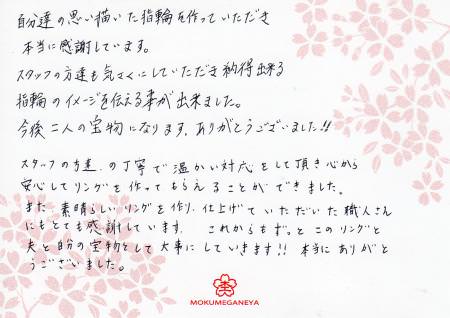 自分達の思い描いた指輪を作っていただき
本当に感謝しています。
スタッフの方達も気さくにしていただき納得出来る
指輪のイメージを伝える事が出来ました。
今後二人の宝物になります。ありがとうございました!!
スタッフの方達の丁寧で温かい対応をして頂き心から
安心してリングを作ってもらえることができました。
また、素晴らしいリングを作り、仕上げていただいた職人さん
にもとても感謝しています。これからもずっとこのリングと
夫と自分の宝物として大事にしていきます!!本当にありがと
うございました。
MOKUMEGANEYA